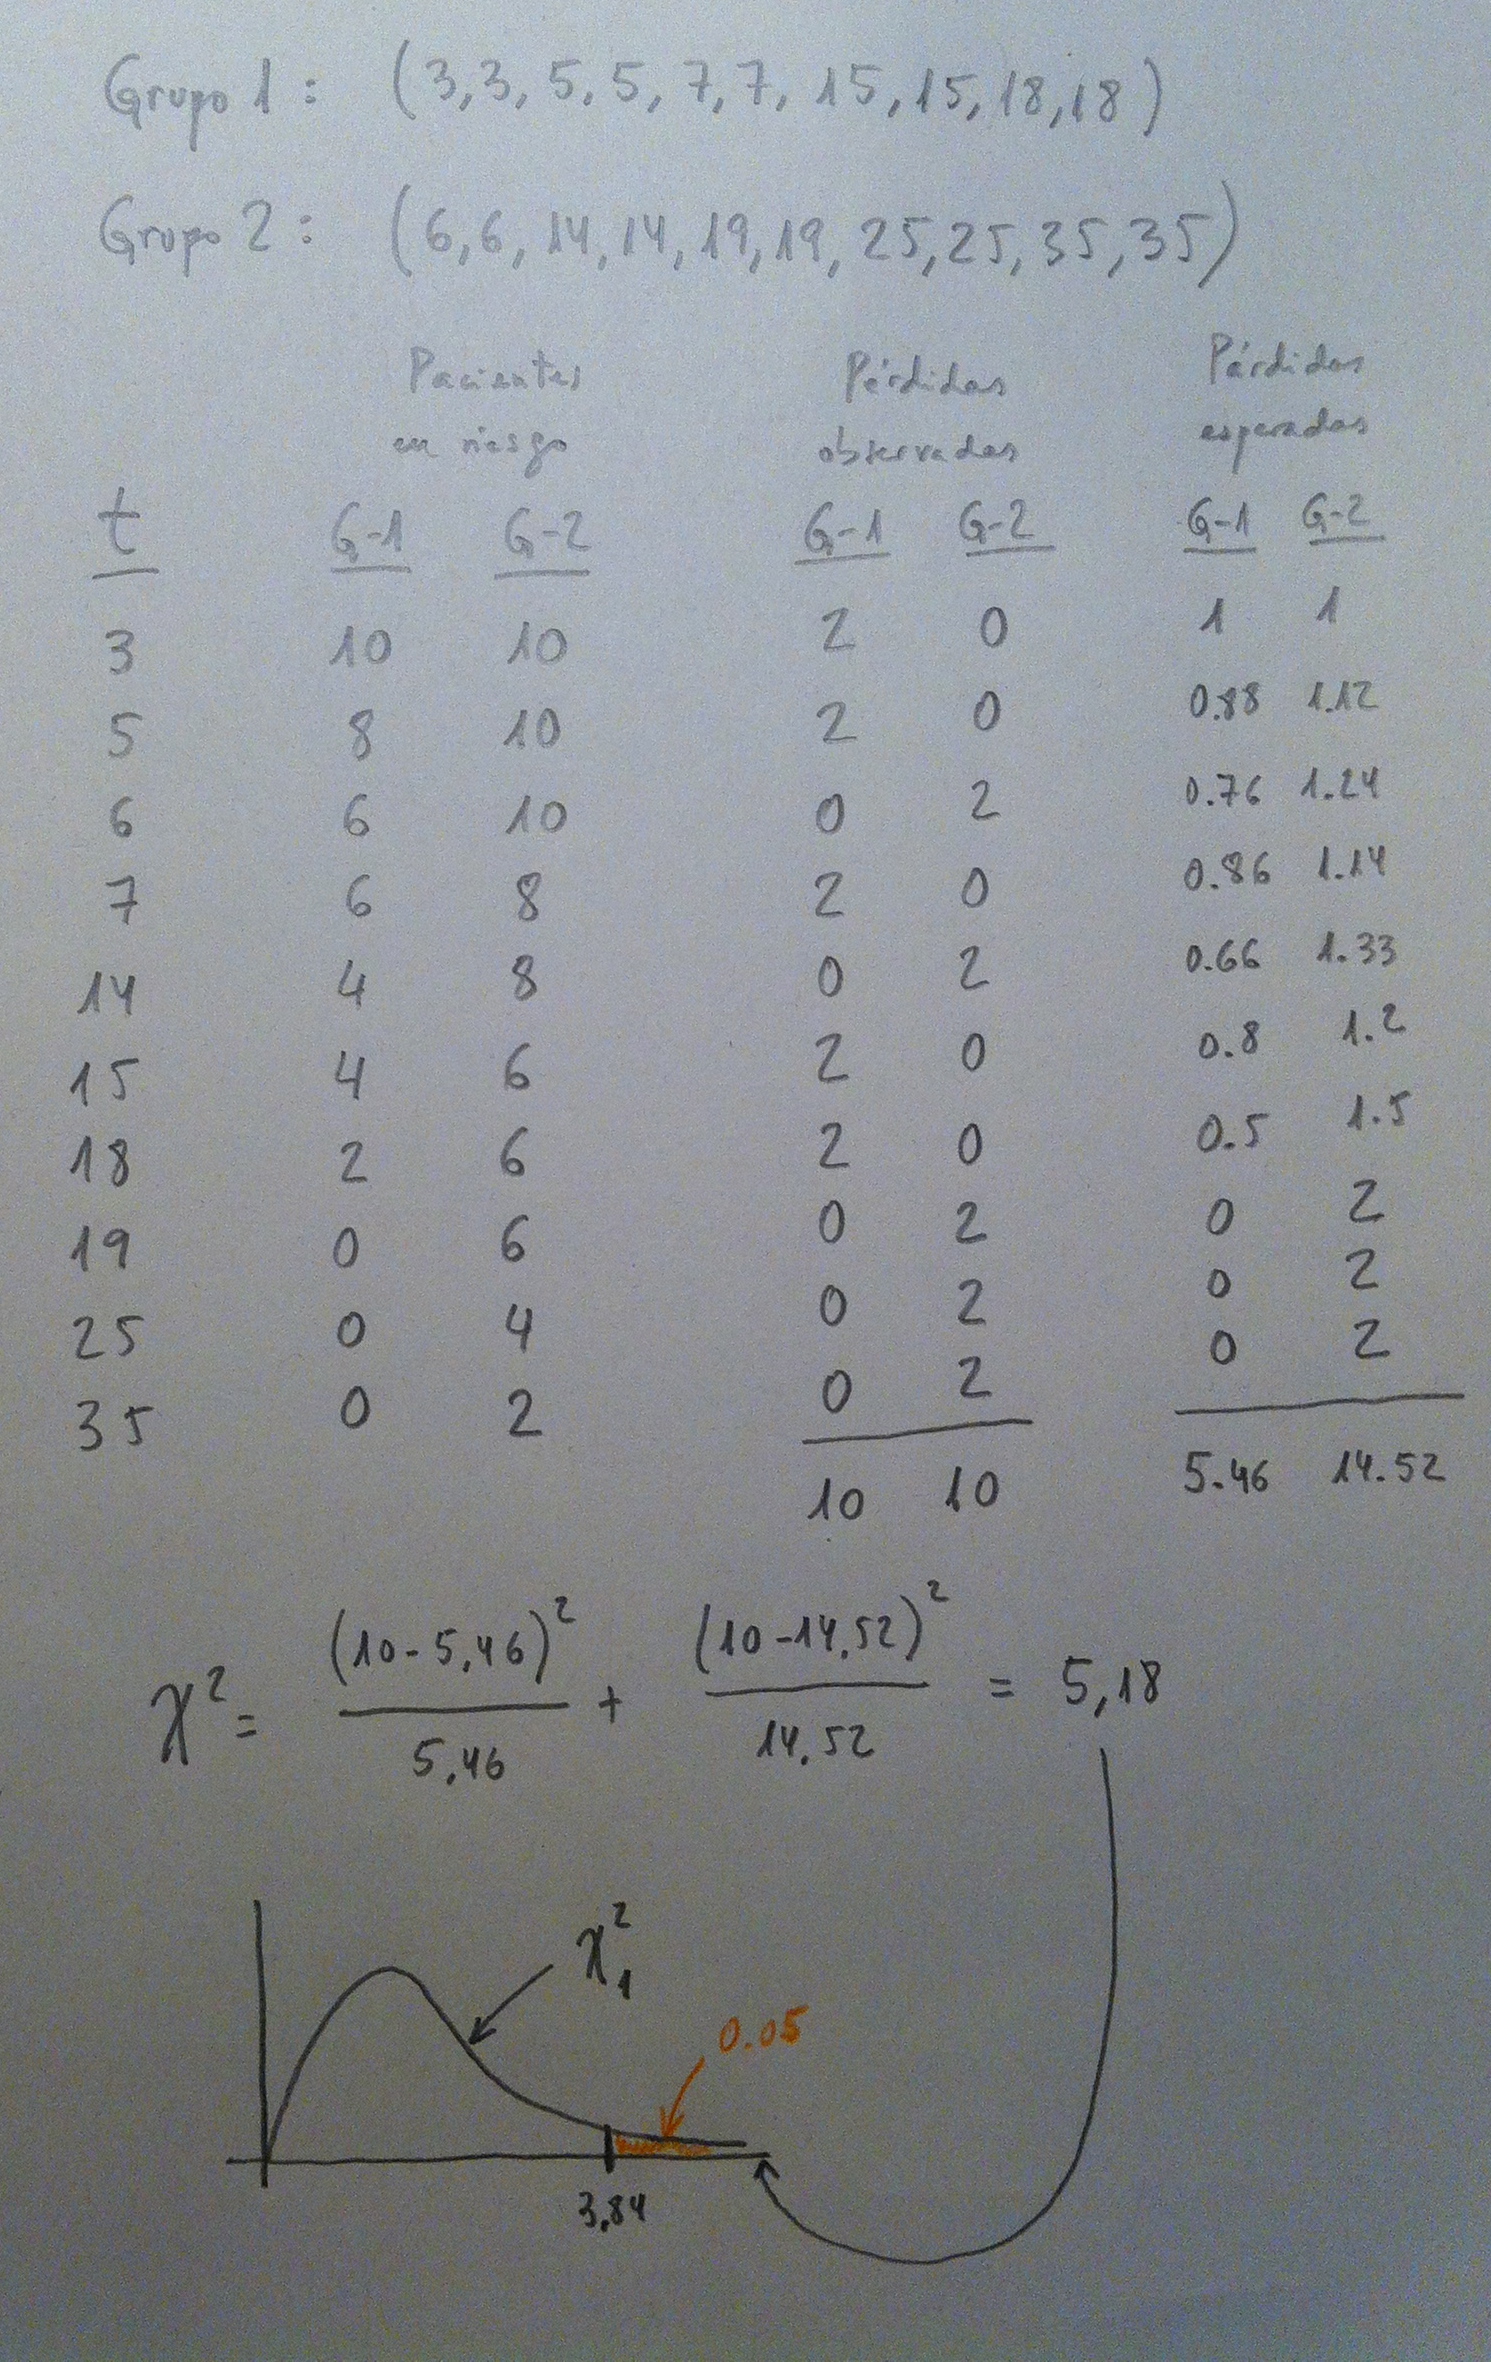 Grupo 1 : (3,3,5,5,7,7,15,15,18,18)
Grupo 2 : (6,6,14,14,19,19,25,25,35,35)
Pacientes Pérdidas Pérdidas
en riesgo observadas esperadas
t G-1 G-2 G-1 G-2 G-1 G-2
3 10 10 2 0 1 1
5 8 10 2 0 0.88 1.12
6 6 10 0 2 0.76 1.24
7 6 8 2 0 0.86 1.14
14 4 8 0 2 0.66 1.33
15 4 6 2 0 0.8 1.2
18 2 6 2 0 0.5 1.5
19 0 6 0 2 0 2
25 0 4 0 2 0 2
35 0 2 0 2 0 2
10 10 5.46 14.52
χ² = (10-5,46)²/5,46 + (10-14,52)²/14,52 = 5,18
χ²₁
0.05
3,84